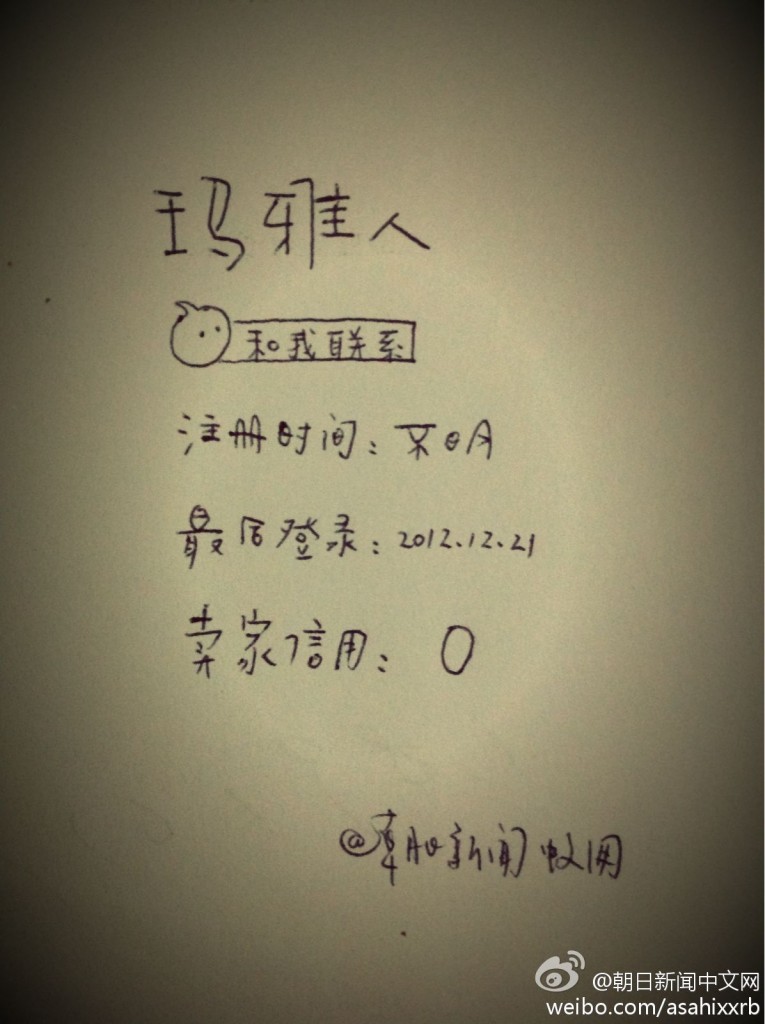 玛雅人
和我联系
注册时间：不明
最后登录：2012.12.21
卖家信用：0
@朝日新闻中文网
@朝日新闻中文网
weibo.com/asahixxrb